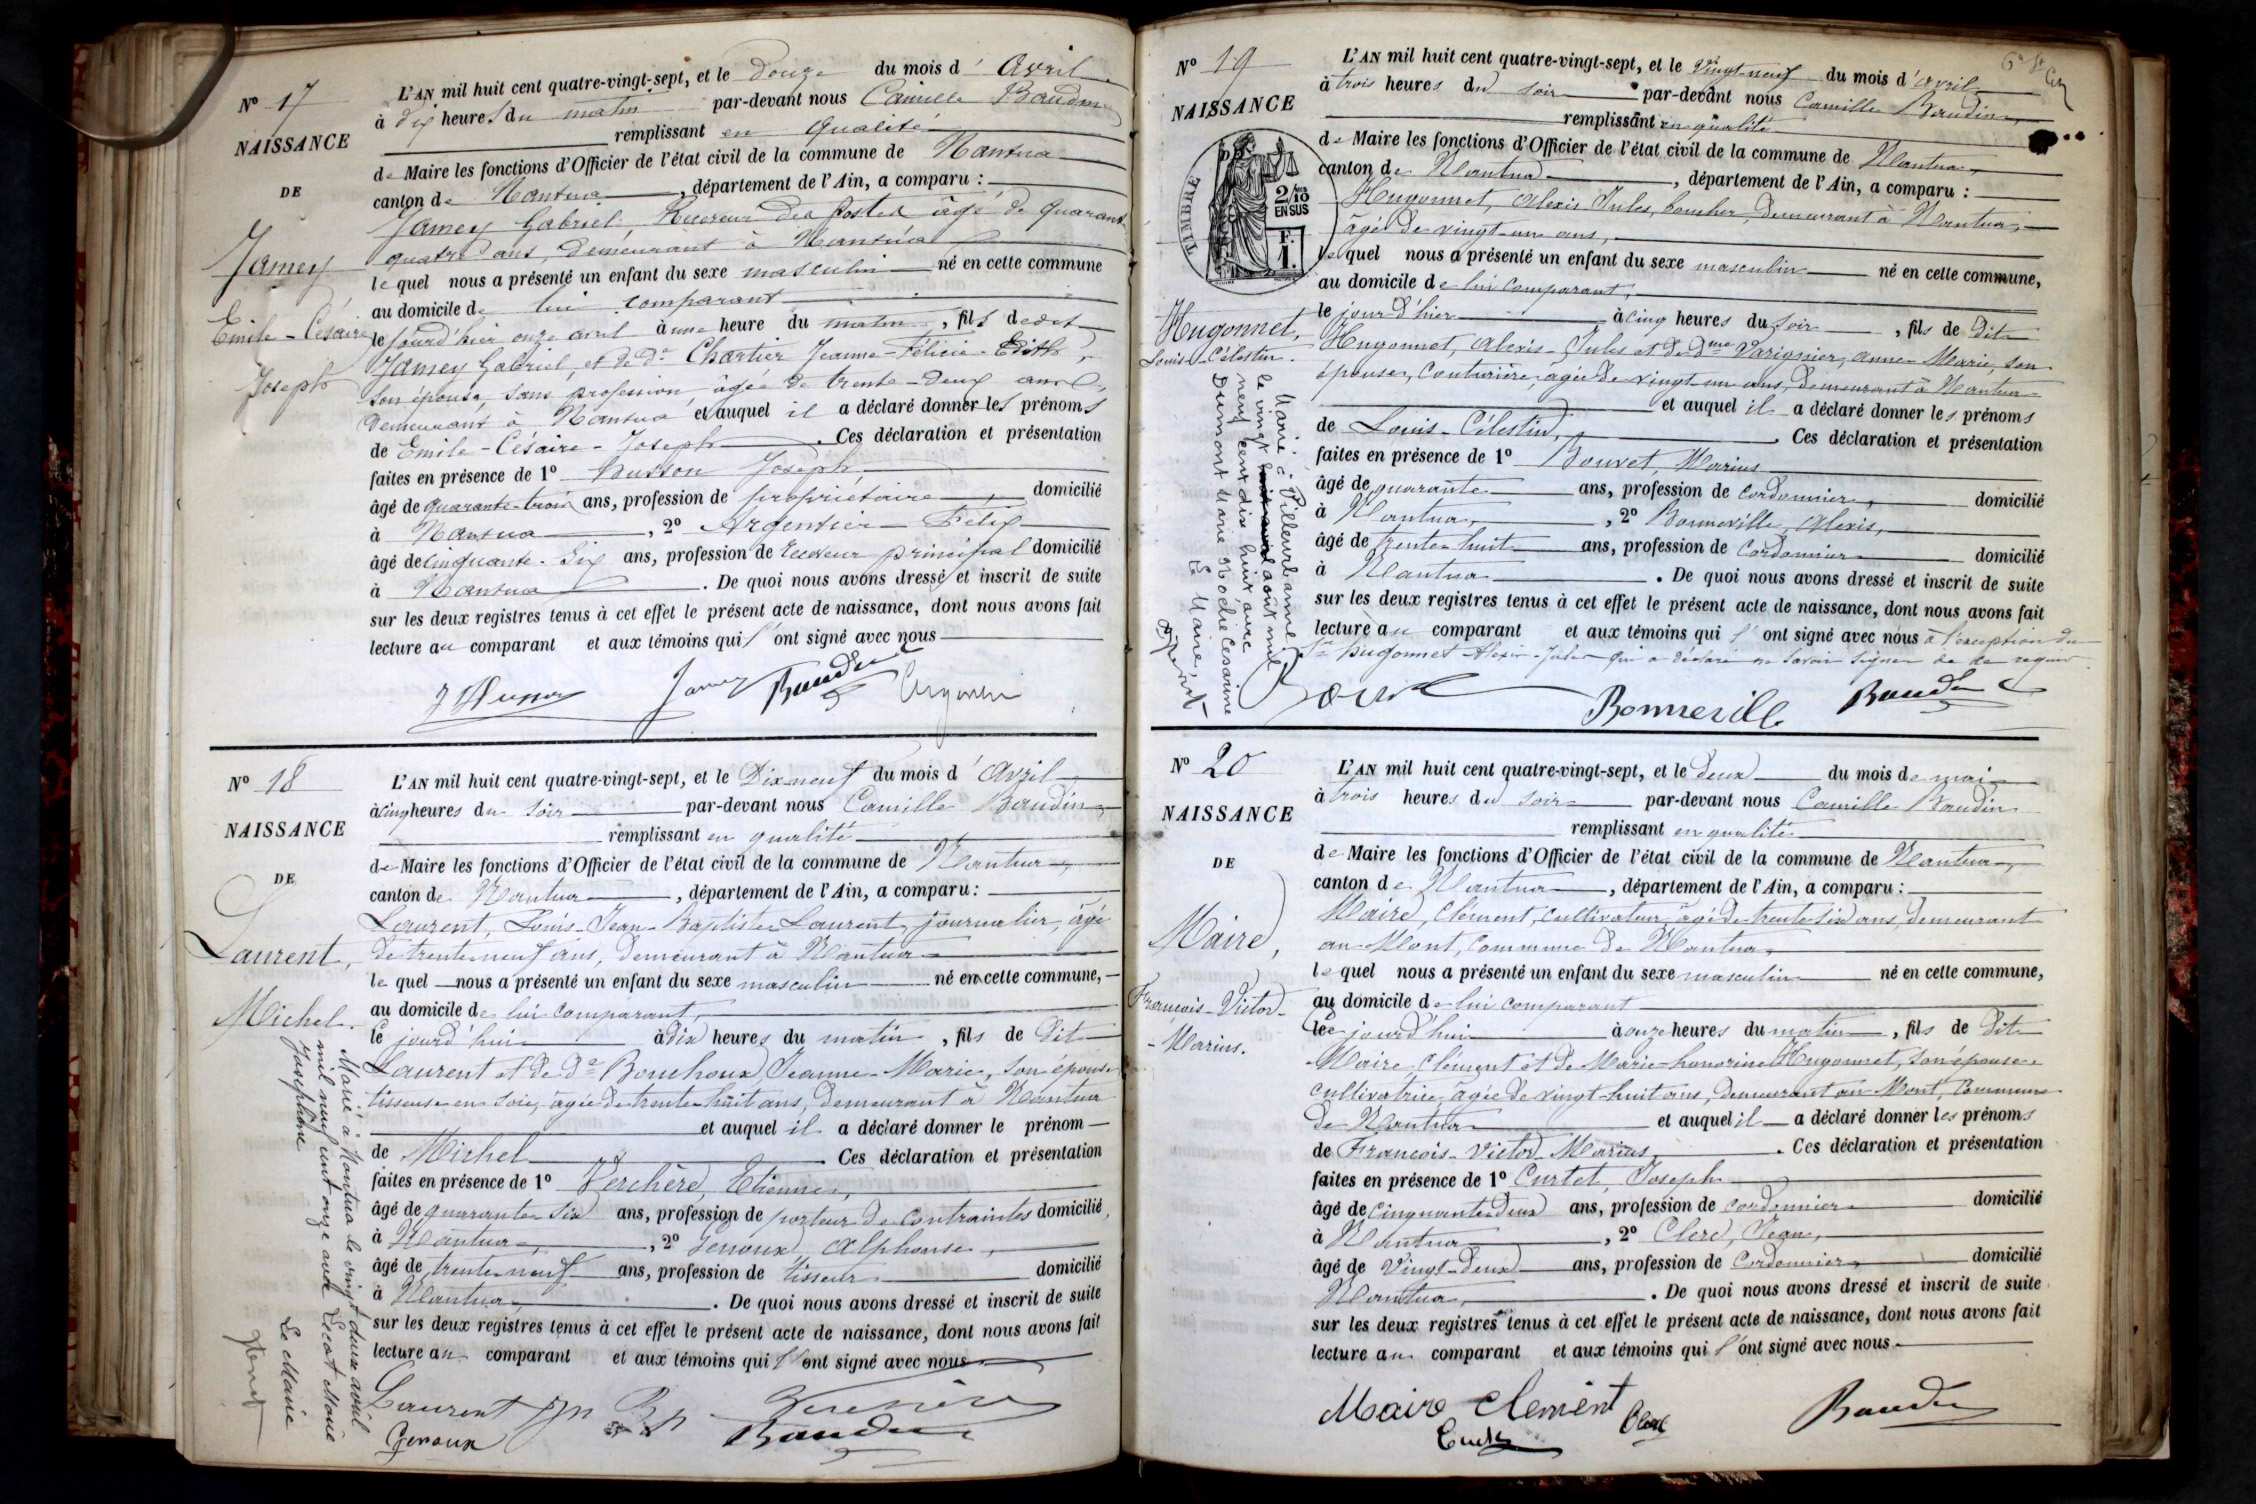 N° 17
NAISSANCE
DE
Jamey
Emile-Césaire
Joseph
L'AN mil huit cent quatre-vingt-sept, et le Douze du mois d'Avril
à dix heures du matin par-devant nous Camille Baudin
remplissant en qualité
de Maire les fonctions d'Officier de l'état civil de la commune de Nantua
canton de Nantua, département de l'Ain, a comparu :
Jamey Gabriel, Receveur des Postes âgé de quarante
quatre ans, demeurant à Nantua
le quel nous a présenté un enfant du sexe masculin né en cette commune
au domicile de lui comparant
le jourd'hier onze avril à une heure du matin, fils de dit
Jamey Gabriel, et de De Chartier Jeanne-Félicie-Edith,
son épouse, sans profession, âgée de trente-deux ans,
demeurant à Nantua et auquel il a déclaré donner les prénoms
de Emile-Césaire-Joseph. Ces déclaration et présentation
faites en présence de 1° Husson Joseph
âgé de quarante-trois ans, profession de propriétaire, domicilié
à Nantua, 2° Argentier Félix
âgé de cinquante-six ans, profession de Receveur principal domicilié
à Nantua. De quoi nous avons dressé et inscrit de suite
sur les deux registres tenus à cet effet le présent acte de naissance, dont nous avons fait
lecture au comparant et aux témoins qui l'ont signé avec nous
J Husson Jamey Baudin Argentier
N° 18
NAISSANCE
DE
Laurent,
Michel.
Marié à Nantua le vingt deux avril
mil neuf cent onze avec Lecot Marie
Joséphine
Le Maire
L'AN mil huit cent quatre-vingt-sept, et le Dix-neuf du mois d'Avril
à cinq heures du soir par-devant nous Camille Baudin,
remplissant en qualité
de Maire les fonctions d'Officier de l'état civil de la commune de Nantua,
canton de Nantua, département de l'Ain, a comparu :
Laurent, Louis-Jean-Baptiste-Laurent, journalier, âgé
de trente-neuf ans, demeurant à Nantua
le quel nous a présenté un enfant du sexe masculin né en cette commune,
au domicile de lui comparant,
le jourd'hui à dix heures du matin, fils de dit
Laurent et de De Bouchoux, Jeanne-Marie, son épouse
tisseuse en soie, âgée de trente-huit ans, demeurant à Nantua
et auquel il a déclaré donner le prénom
de Michel. Ces déclaration et présentation
faites en présence de 1° Verchère, Etienne,
âgé de quarante-six ans, profession de porteur de contraintes domicilié,
à Nantua, 2° Genoux, Alphonse,
âgé de trente-neuf ans, profession de tisseur domicilié
à Nantua. De quoi nous avons dressé et inscrit de suite
sur les deux registres tenus à cet effet le présent acte de naissance, dont nous avons fait
lecture au comparant et aux témoins qui l'ont signé avec nous
Laurent Verchère
Genoux Baudin
N° 19
NAISSANCE
TIMBRE
2/10
EN SUS
F.
1.
Hugonnet,
Louis-Célestin.
Marié à Villeurbanne
le vingt août mil
neuf cent dix huit avec
Dumont Marie Césarine
Le Maire,
L'AN mil huit cent quatre-vingt-sept, et le vingt-neuf du mois d'avril
à trois heures du soir par-devant nous Camille Baudin,
remplissant en qualité
de Maire les fonctions d'Officier de l'état civil de la commune de Nantua,
canton de Nantua, département de l'Ain, a comparu :
Hugonnet, Alexis Jules, boucher, demeurant à Nantua,
âgé de vingt-un ans,
le quel nous a présenté un enfant du sexe masculin né en cette commune,
au domicile de lui comparant,
le jour d'hier à cinq heures du soir, fils de dit
Hugonnet, Alexis-Jules et de Dme Varignier, Anne-Marie, son
épouse, couturière, âgée de vingt-un ans, demeurant à Nantua
et auquel il a déclaré donner les prénoms
de Louis-Célestin. Ces déclaration et présentation
faites en présence de 1° Bouvet, Marius
âgé de quarante ans, profession de cordonnier, domicilié
à Nantua, 2° Bonneville, Alexis,
âgé de trente-huit ans, profession de cordonnier domicilié
à Nantua. De quoi nous avons dressé et inscrit de suite
sur les deux registres tenus à cet effet le présent acte de naissance, dont nous avons fait
lecture au comparant et aux témoins qui l'ont signé avec nous à l'exception du
Sr Hugonnet Alexis-Jules qui a déclaré ne savoir signer de ce requis
Bouvet Bonneville Baudin
N° 20
NAISSANCE
DE
Maire,
François-Victor-
-Marius.
L'AN mil huit cent quatre-vingt-sept, et le deux du mois de mai
à trois heures du soir par-devant nous Camille Baudin
remplissant en qualité
de Maire les fonctions d'Officier de l'état civil de la commune de Nantua,
canton de Nantua, département de l'Ain, a comparu :
Maire, Clément, cultivateur, âgé de trente-six ans, demeurant
au Mont, commune de Nantua,
le quel nous a présenté un enfant du sexe masculin né en cette commune,
au domicile de lui comparant
le jourd'hui à onze heures du matin, fils de dit
Maire Clément et de Marie-honorine Hugonnet, son épouse
cultivatrice, âgée de vingt-huit ans, demeurant au Mont, commune
de Nantua et auquel il a déclaré donner les prénoms
de François-Victor-Marius. Ces déclaration et présentation
faites en présence de 1° Curtet, Joseph
âgé de cinquante-deux ans, profession de cordonnier domicilié
à Nantua, 2° Clerc, Jean,
âgé de vingt-deux ans, profession de Cordonnier, domicilié
Nantua. De quoi nous avons dressé et inscrit de suite
sur les deux registres tenus à cet effet le présent acte de naissance, dont nous avons fait
lecture au comparant et aux témoins qui l'ont signé avec nous
Maire Clément Clerc Baudin
Curtet